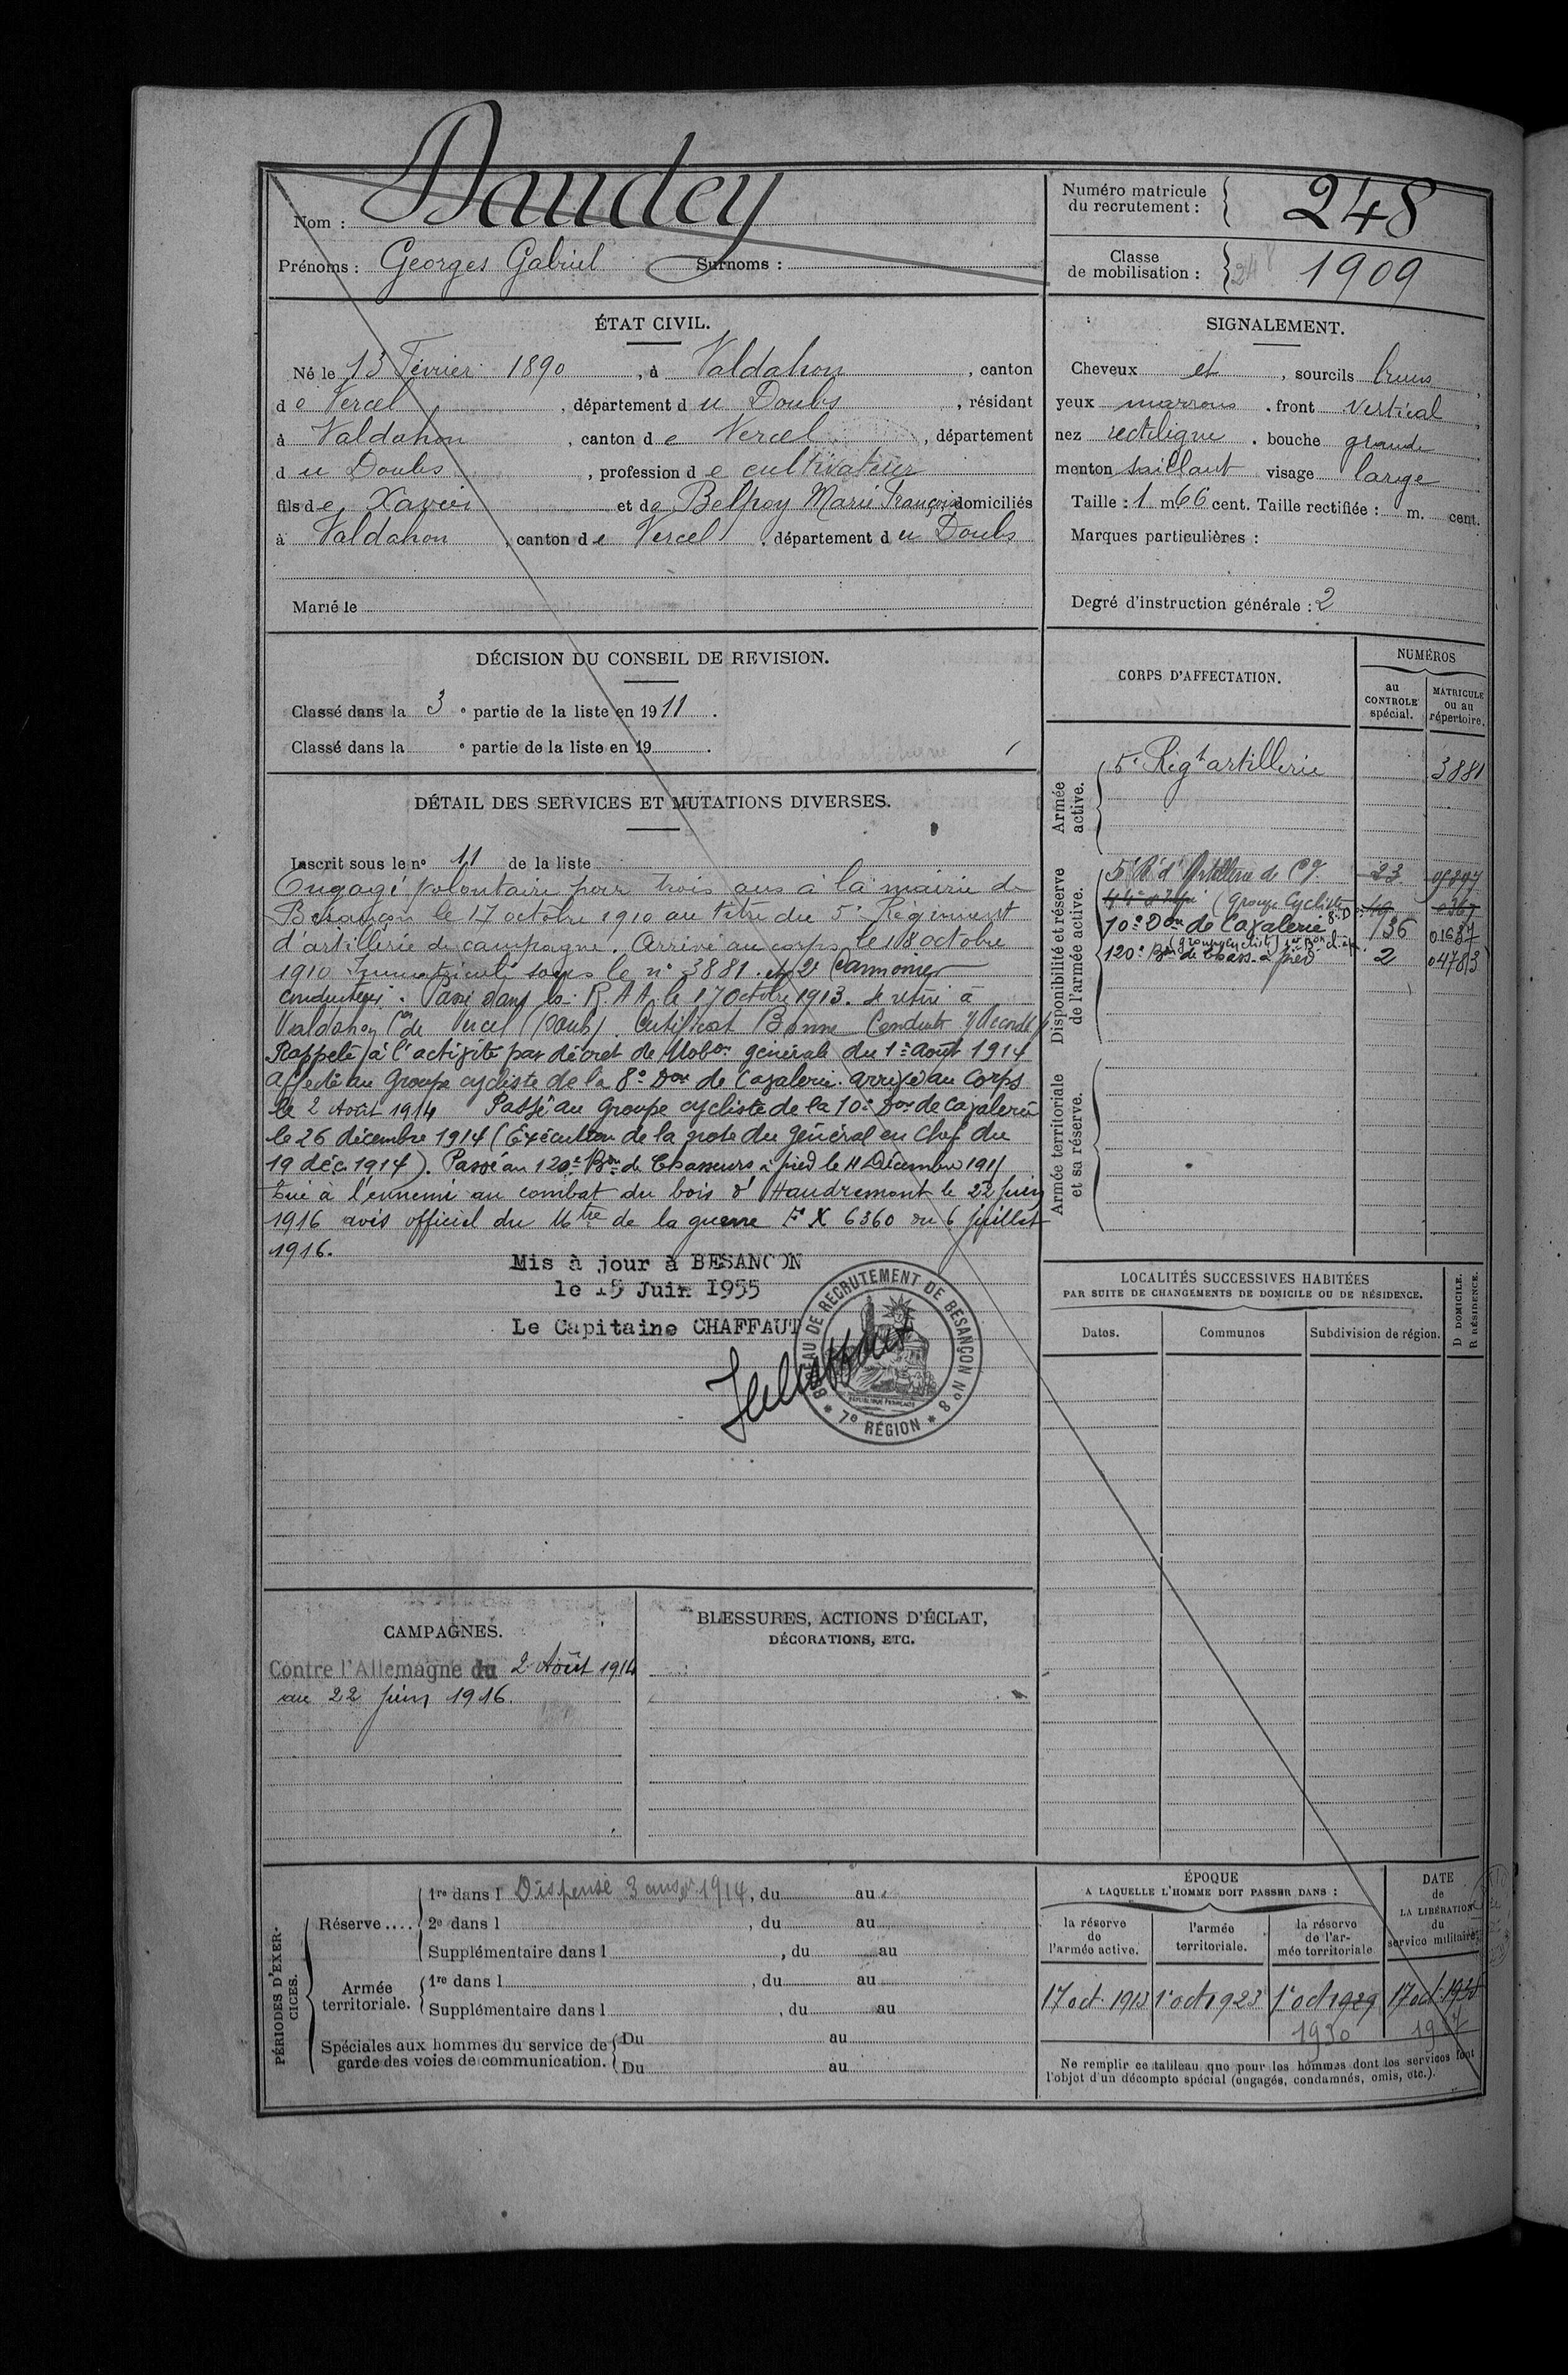 Nom : Daudey
Prénoms : Georges Gabriel Surnoms :
Numéro matricule du recrutement : 248
Classe de mobilisation : 1909
ÉTAT CIVIL.
Né le 13 Février 1890, à Valdahon, canton
de Vercel, département du Doubs, résidant
à Valdahon, canton de Vercel, département
du Doubs, profession de cultivateur
fils de Xavier et de Belpoy Marie Françoise domiciliés
à Valdahon, canton de Vercel, département du Doubs
Marié le
SIGNALEMENT.
Cheveux et, sourcils bruns
yeux marrons. front vertical
nez rectiligne. bouche grande
menton saillant visage large
Taille : 1 m 66 cent. Taille rectifiée : m. cent.
Marques particulières :
Degré d'instruction générale : 2
DÉCISION DU CONSEIL DE REVISION.
Classé dans la 3e partie de la liste en 1911.
Classé dans la e partie de la liste en 19 .
DÉTAIL DES SERVICES ET MUTATIONS DIVERSES.
Inscrit sous le n° 11 de la liste
Engagé volontaire pour trois ans à la mairie de
Besançon le 17 octobre 1910 au titre du 5e Régiment
d'artillerie de campagne. Arrivé au corps le 18 octobre
1910 Immatriculé sous le n° 3881. et 2e Cannonier
conducteur. Passé dans la R. A A. le 17 Octobre 1913. Se retire à
Valdahon Con de Vercel (Doubs). Certificat Bonne Conduite accordé
Rappelé à l'activité par décret de Mobon générale du 1er août 1914
affecté au Groupe cycliste de la 8e Don de Cavalerie. arrivé au Corps
le 2 Août 1914 Passé au Groupe cycliste de la 10e Don de Cavalerie
le 26 décembre 1914 (Exécution de la note du général en Chef du
19 déc. 1914). Passé au 120e Bon de Chasseurs à pied le 11 Décembre 1915
Tué à l'ennemi au combat du bois d'Haudremont le 22 juin
1916 avis officiel du Mtre de la guerre F X 6360 du 6 juillet
1916.
Mis à jour à BESANCON
le 15 Juin 1955
Le Capitaine CHAFFAUT
BUREAU DE RECRUTEMENT DE BESANÇON N° 8
* 7e RÉGION *
RÉPUBLIQUE FRANÇAISE
CORPS D'AFFECTATION.
NUMÉROS
au CONTROLE spécial.
MATRICULE ou au répertoire.
Armée active.
5e Régt artillerie 3881
Disponibilité et réserve de l'armée active.
5e R. d'Artillerie de Cgne 23
(Groupe Cycliste 8e D 49 0367
10e Don de Cavalerie 136 01637
(groupe cycliste)
120e Bon de Chass. à pied 2 04783
Armée territoriale et sa réserve.
LOCALITÉS SUCCESSIVES HABITÉES
PAR SUITE DE CHANGEMENTS DE DOMICILE OU DE RÉSIDENCE.
Dates. Communes Subdivision de région. D DOMICILE. R RÉSIDENCE.
CAMPAGNES.
Contre l'Allemagne du 2 Août 1914
au 22 juin 1916.
BLESSURES, ACTIONS D'ÉCLAT,
DÉCORATIONS, ETC.
PÉRIODES D'EXERCICES.
Réserve....
1re dans l Dispensé 3 ans 1914, du au
2e dans l , du au
Supplémentaire dans l , du au
Armée territoriale.
1re dans l , du au
Supplémentaire dans l , du au
Spéciales aux hommes du service de garde des voies de communication.
Du au
Du au
ÉPOQUE
A LAQUELLE L'HOMME DOIT PASSER DANS :
la réserve de l'armée active.
l'armée territoriale.
la réserve de l'armée territoriale
DATE de LA LIBÉRATION du service militaire.
17 oct. 1913 1er oct 1923 1er oct 1929 17 oct. 1936
1930 1937
Ne remplir ce tableau que pour les hommes dont les services font
l'objet d'un décompte spécial (engagés, condamnés, omis, etc.).